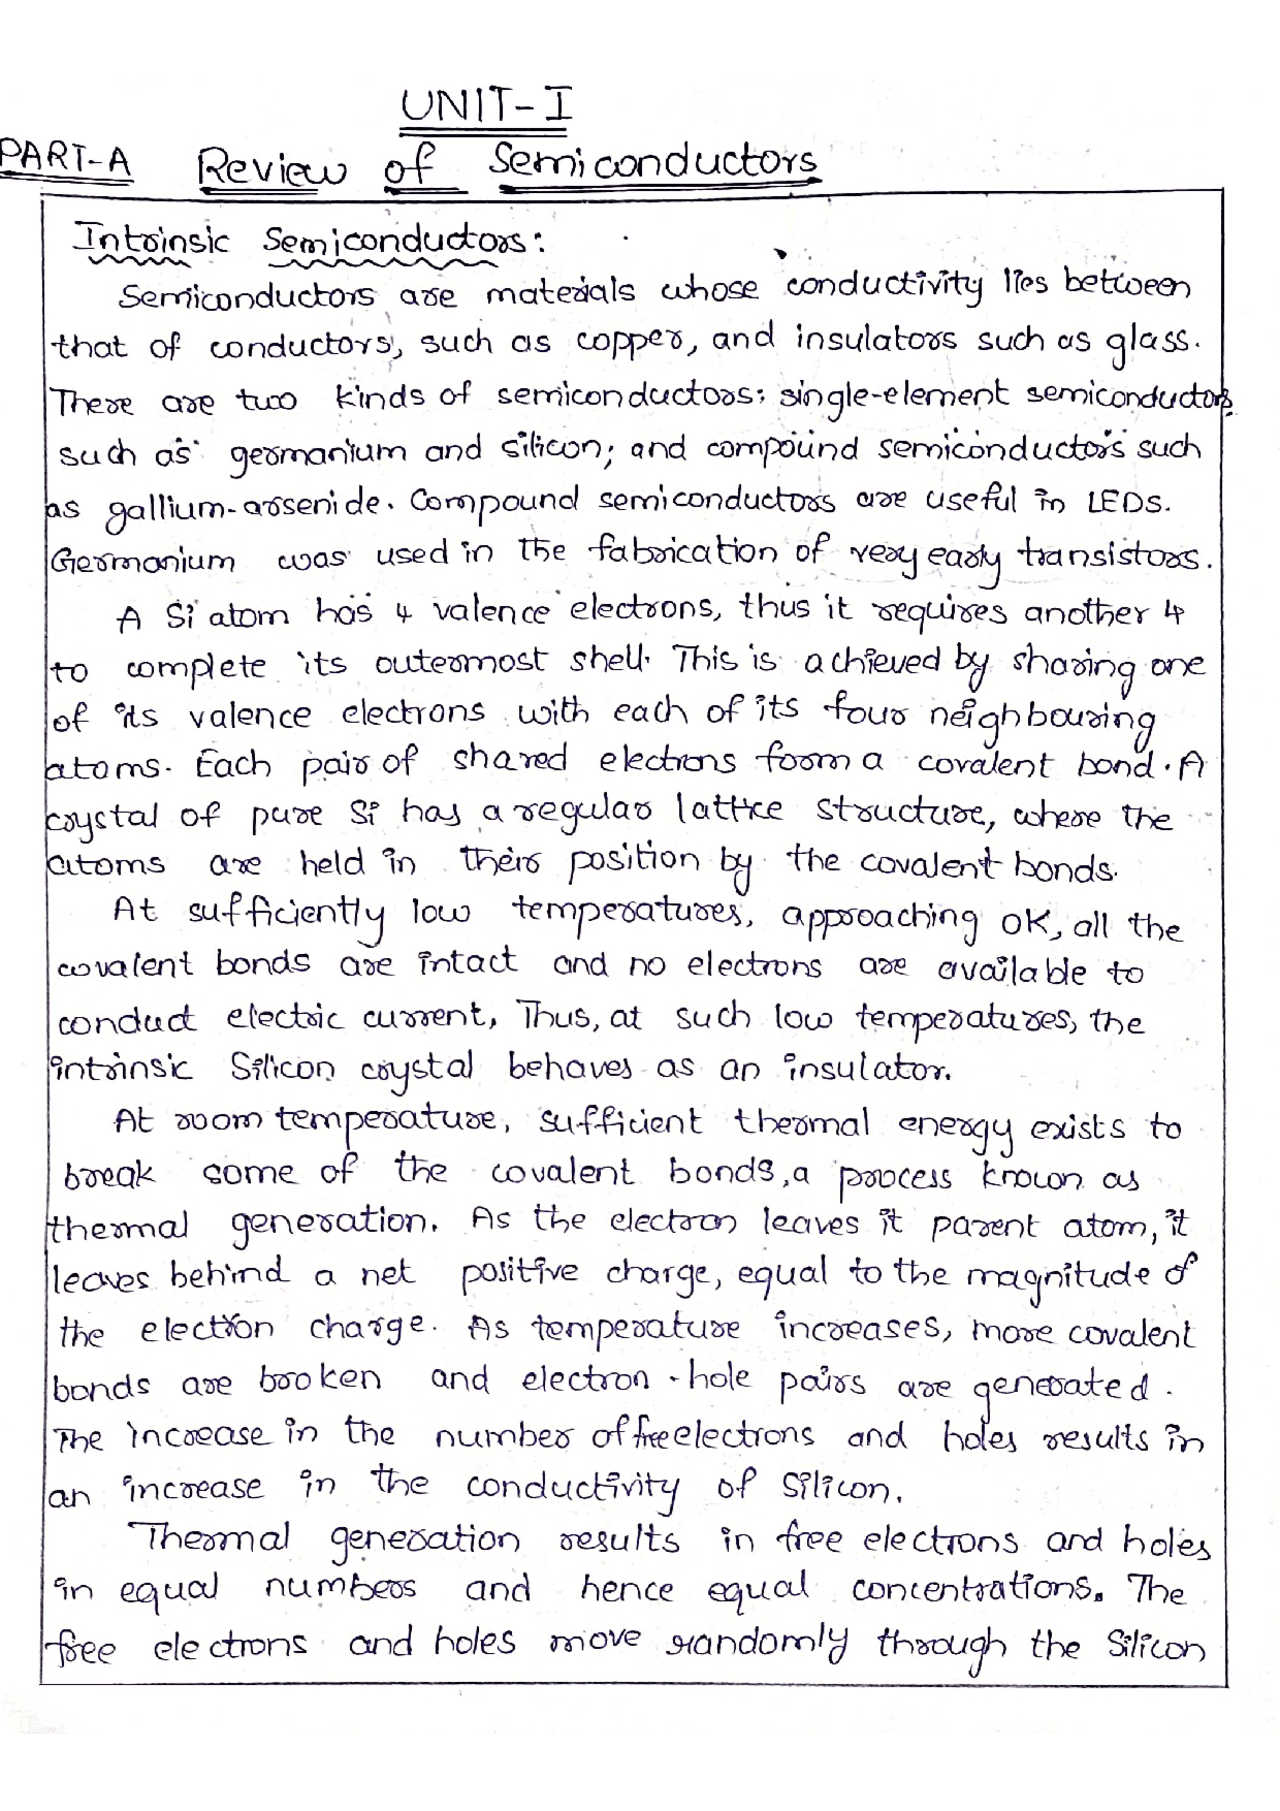 UNIT-I
PART-A Review of Semiconductors
Intrinsic Semiconductors:
Semiconductors are materials whose conductivity lies between
that of conductors, such as copper, and insulators such as glass.
There are two kinds of semiconductors: single-element semiconductors
such as germanium and silicon; and compound semiconductors such
as gallium-arsenide. Compound semiconductors are useful in LEDs.
Germanium was used in the fabrication of very early transistors.
A Si atom has 4 valence electrons, thus it requires another 4
to complete its outermost shell. This is achieved by sharing one
of its valence electrons with each of its four neighbouring
atoms. Each pair of shared electrons form a covalent bond. A
crystal of pure Si has a regular lattice structure, where the
atoms are held in their position by the covalent bonds.
At sufficiently low temperatures, approaching 0K, all the
covalent bonds are intact and no electrons are available to
conduct electric current, Thus, at such low temperatures, the
intrinsic Silicon crystal behaves as an insulator.
At room temperature, sufficient thermal energy exists to
break some of the covalent bonds, a process known as
thermal generation. As the electron leaves it parent atom, it
leaves behind a net positive charge, equal to the magnitude of
the electron charge. As temperature increases, more covalent
bonds are broken and electron-hole pairs are generated.
The increase in the number of free electrons and holes results in
an increase in the conductivity of Silicon.
Thermal generation results in free electrons and holes
in equal numbers and hence equal concentrations. The
free electrons and holes move randomly through the Silicon